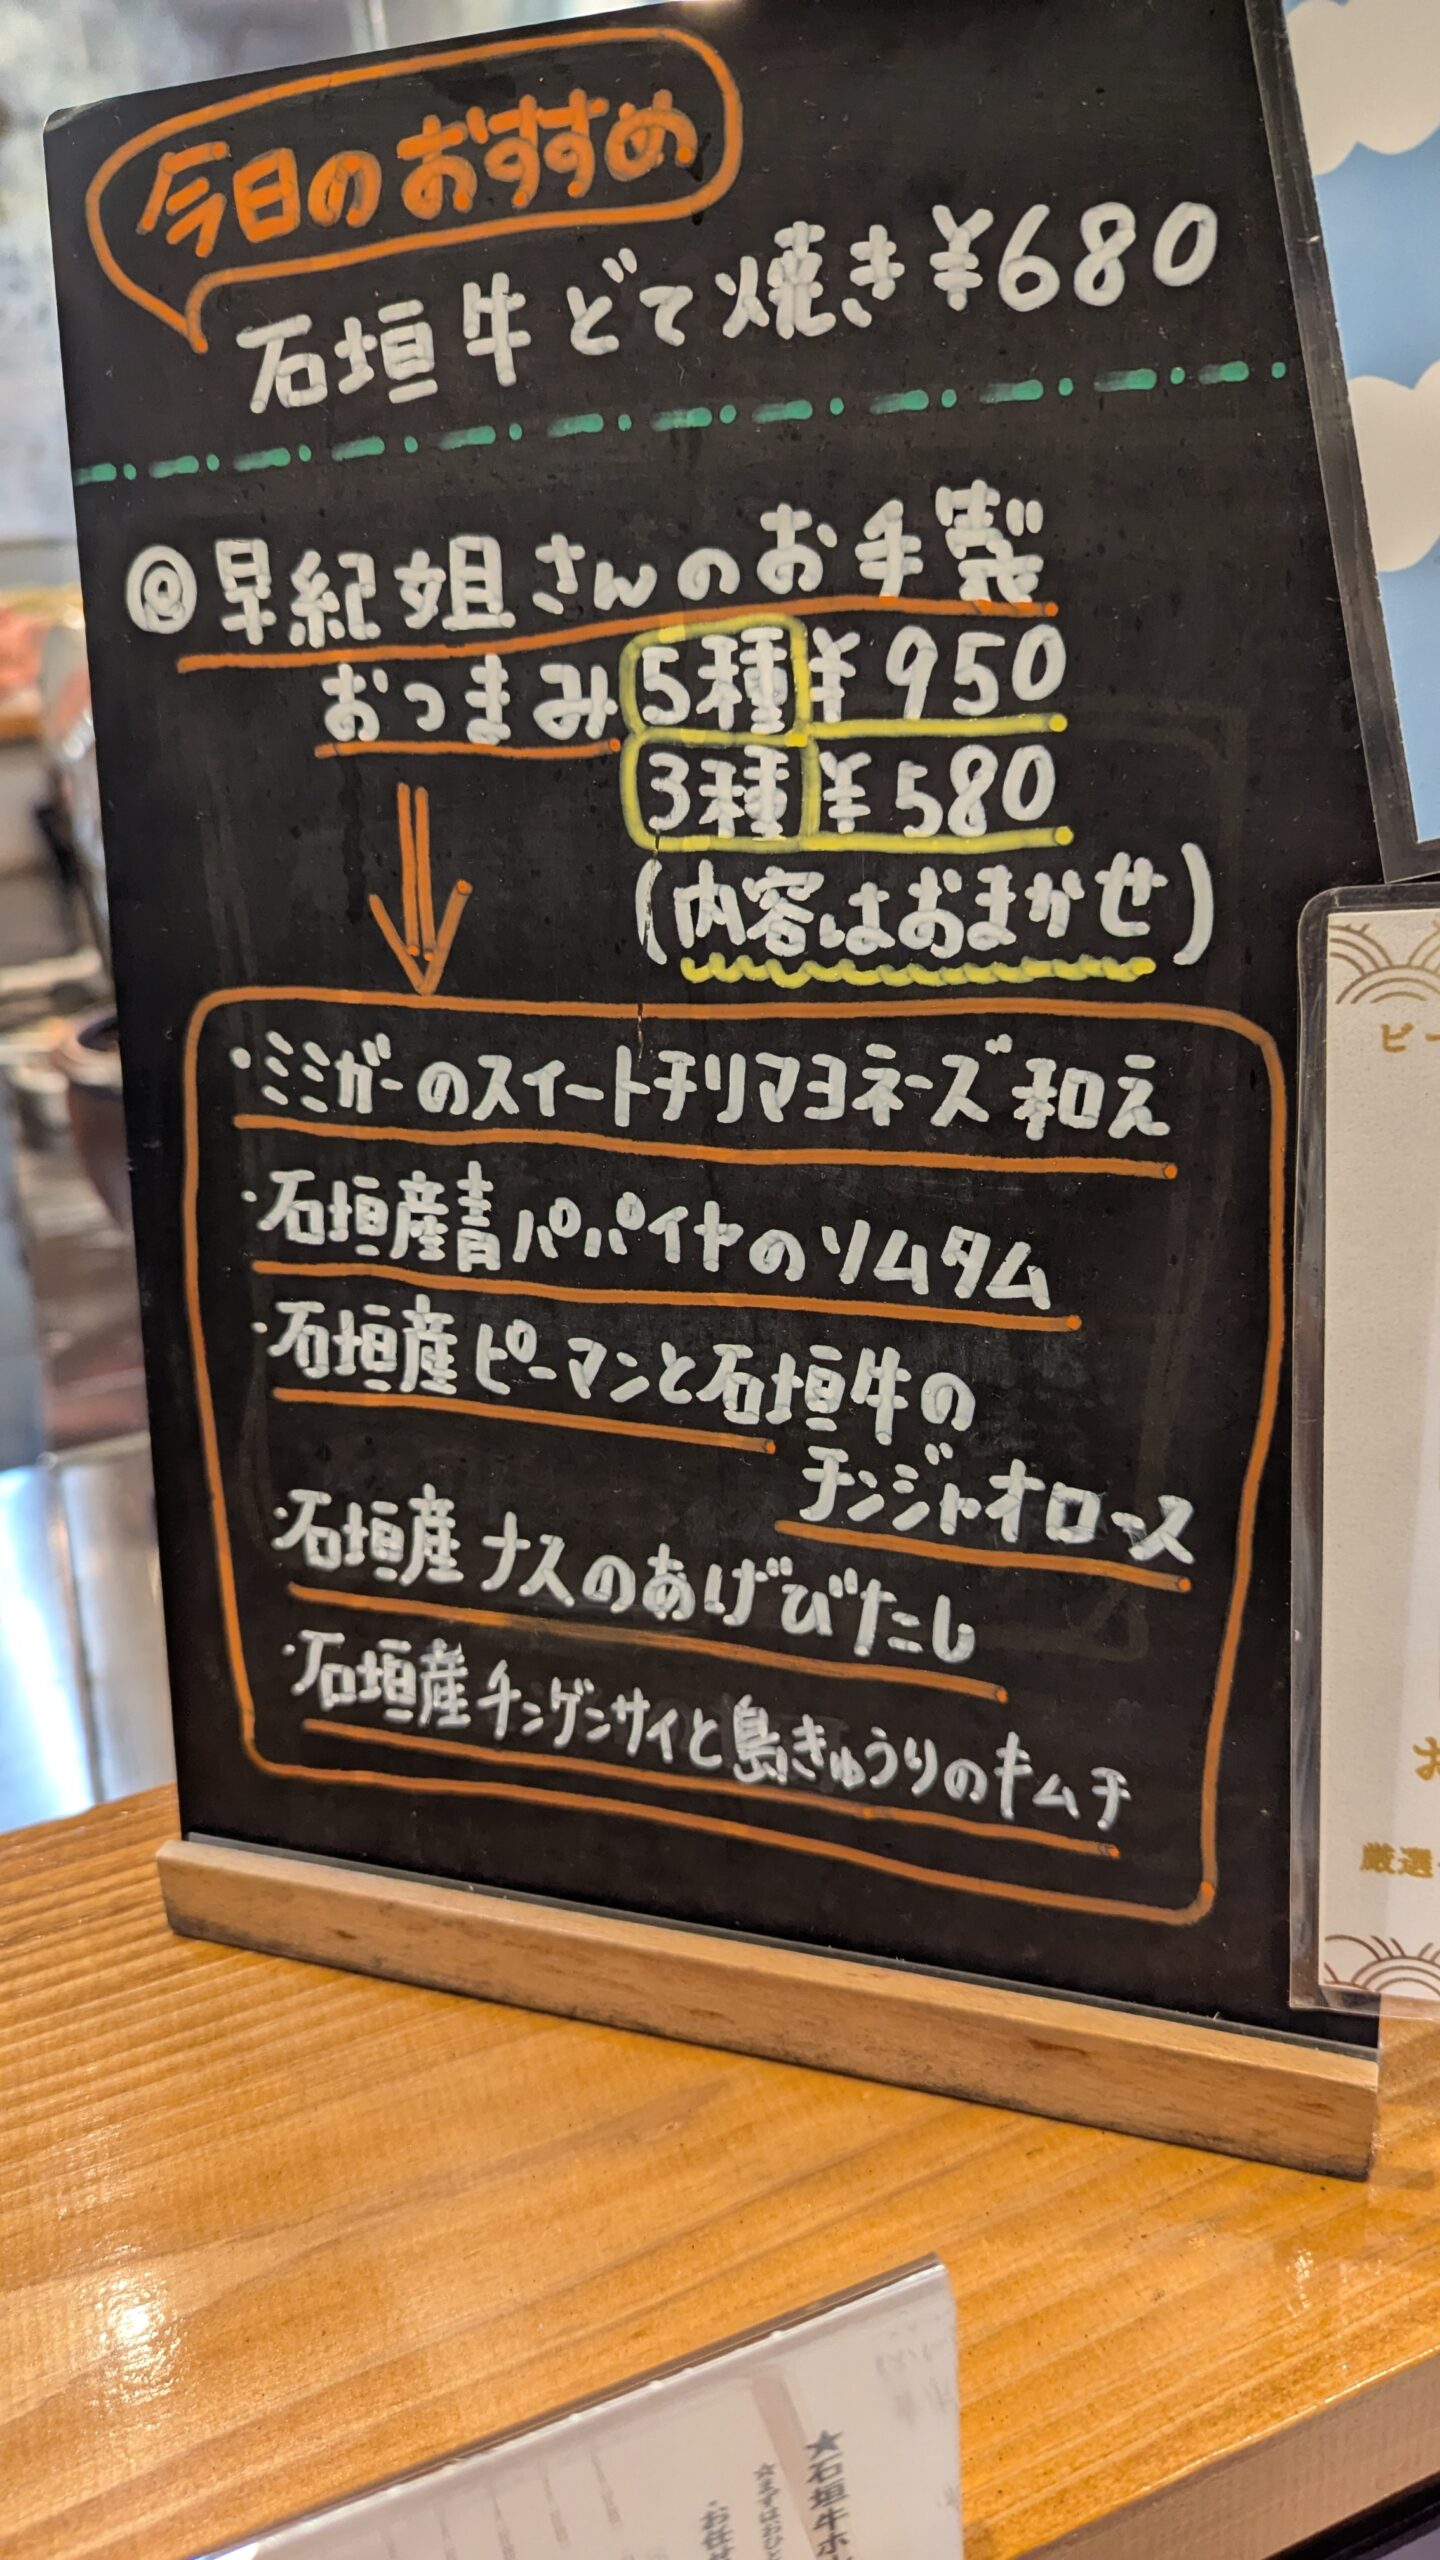 今日のおすすめ
石垣牛どて焼き¥680
@早紀姐さんのお手製
おつまみ 5種 ¥950
3種 ¥580
(内容はおまかせ)
・ミミガーのスイートチリマヨネーズ和え
・石垣産青パパイヤのソムタム
・石垣産ピーマンと石垣牛の
チンジャオロース
・石垣産ナスのあげびたし
・石垣産チンゲンサイと島きゅうりのキムチ
ビー
お
厳選
★石垣牛ホ